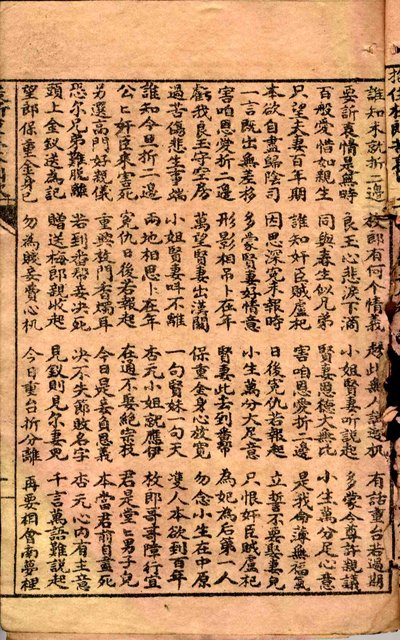 誰知未就折二邊 枚郎有何个情義 趁此無人話過机 有話重台若過期
要訴衷情是無時 良玉心悲淚下滴 小姐賢妻听說起 多蒙令尊許親議
百般愛惜如親生 同與春生似兄弟 賢妻恩德大無比 小生萬分足心意
只望夫妻百年期 誰知奸臣賊盧杞 害咱恩愛折二邊 是我命薄無福氣
本欲自盡歸陰司 因思深冤未報時 日後冤仇若報起 立誓不要娶妻兒
一言既出無差移 多蒙賢妻好情意 小生萬分大足意 只恨奸臣賊盧杞
害咱恩愛折二邊 形影相吊卜在年 賢妻此去到番帮 為妃為后第一人
虧我良玉守空房 萬望賢妻出漢關 保重金身心放寬 勿念小生在中原
過苦傷悲生事端 小姐賢妻呌不離 一句賢妹一句天 雙人本欲到百年
誰知今旦折二邊 兩地相思卜在年 杏元小姐就應伊 枚郎哥哥障行宜
公〻奸臣來害死 冤仇日後若報起 在過不娶絕宗枝 君是堂〻男子兒
另選高門好親儀 重興枚門香燭耳 今日是妾負恩義 本當君前自盡死
恐尔兄弟難脫離 若到番邦妾決死 決不失郎敗名字 杏元心內有主意
頭上金釵送為記 贈送梅郎親收起 見釵則見尔妻兒 千言萬語難說起
望郎保重金身己 勿為賤妾費心机 今日重台折分離 再要相會南夢裡